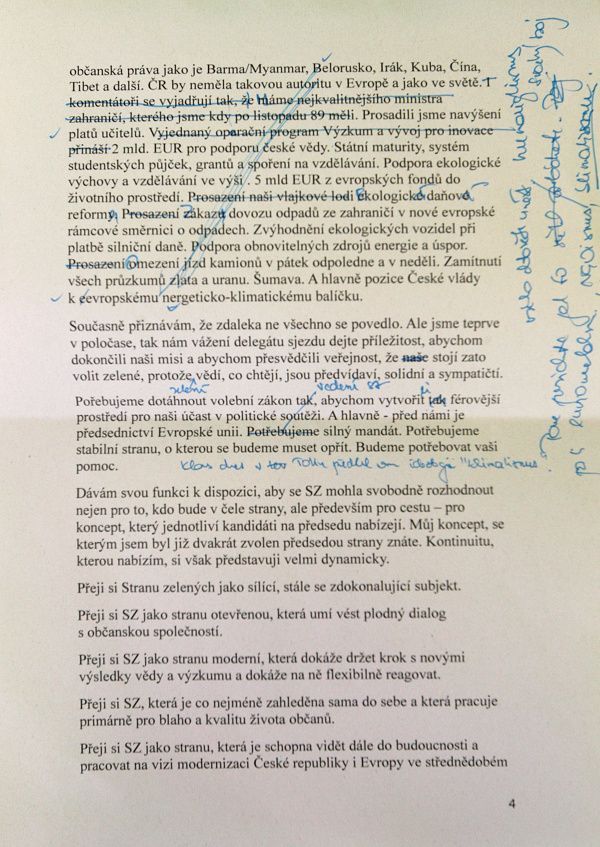 občanská práva jako je Barma/Myanmar, Belorusko, Irák, Kuba, Čína,
Tibet a další. ČR by neměla takovou autoritu v Evropě a jako ve světě. I
komentátoři se vyjadřují tak, že máme nejkvalitnějšího ministra
zahraničí, kterého jsme kdy po listopadu 89 měli. Prosadili jsme navýšení
platů učitelů. Vyjednaný operační program Výzkum a vývoj pro inovace
přináší 2 mld. EUR pro podporu české vědy. Státní maturity, systém
studentských půjček, grantů a spoření na vzdělávání. Podpora ekologické
výchovy a vzdělávání ve výši . 5 mld EUR z evropských fondů do
životního prostředí. Prosazení naši vlajkové lodi ekologická daňová
reformy. Prosazení zákazu dovozu odpadů ze zahraničí v nové evropské
rámcové směrnici o odpadech. Zvýhodnění ekologických vozidel při
platbě silniční daně. Podpora obnovitelných zdrojů energie a úspor.
Prosazení omezení jízd kamionů v pátek odpoledne a v neděli. Zamítnutí
všech průzkumů zlata a uranu. Šumava. A hlavně pozice České vlády
k eevropskému nergeticko-klimatickému balíčku.
Současně přiznávám, že zdaleka ne všechno se povedlo. Ale jsme teprve
v poločase, tak nám vážení delegátu sjezdu dejte příležitost, abychom
dokončili naši misi a abychom přesvědčili veřejnost, že naše stojí zato
volit zelené, protože vědí, co chtějí, jsou předvídaví, solidní a sympatičtí.
vedení SZ
Potřebujeme dotáhnout volební zákon tak, abychom vytvořit jak férovější
prostředí pro naši účast v politické soutěži. A hlavně - před námi je
předsednictví Evropské unii. Potřebujeme silný mandát. Potřebujeme
stabilní stranu, o kterou se budeme muset opřít. Budeme potřebovat vaši
pomoc.
Klaus dnes v
ideologii "klimatismus"
Dávám svou funkci k dispozici, aby se SZ mohla svobodně rozhodnout
nejen pro to, kdo bude v čele strany, ale především pro cestu – pro
koncept, který jednotliví kandidáti na předsedu nabízejí. Můj koncept, se
kterým jsem byl již dvakrát zvolen předsedou strany znáte. Kontinuitu,
kterou nabízím, si však představuji velmi dynamicky.
Přeji si Stranu zelených jako sílící, stále se zdokonalující subjekt.
Přeji si SZ jako stranu otevřenou, která umí vést plodný dialog
s občanskou společností.
Přeji si SZ jako stranu moderní, která dokáže držet krok s novými
výsledky vědy a výzkumu a dokáže na ně flexibilně reagovat.
Přeji si SZ, která je co nejméně zahleděna sama do sebe a která pracuje
primárně pro blaho a kvalitu života občanů.
Přeji si SZ jako stranu, která je schopna vidět dále do budoucnosti a
pracovat na vizi modernizaci České republiky i Evropy ve střednědobém
4